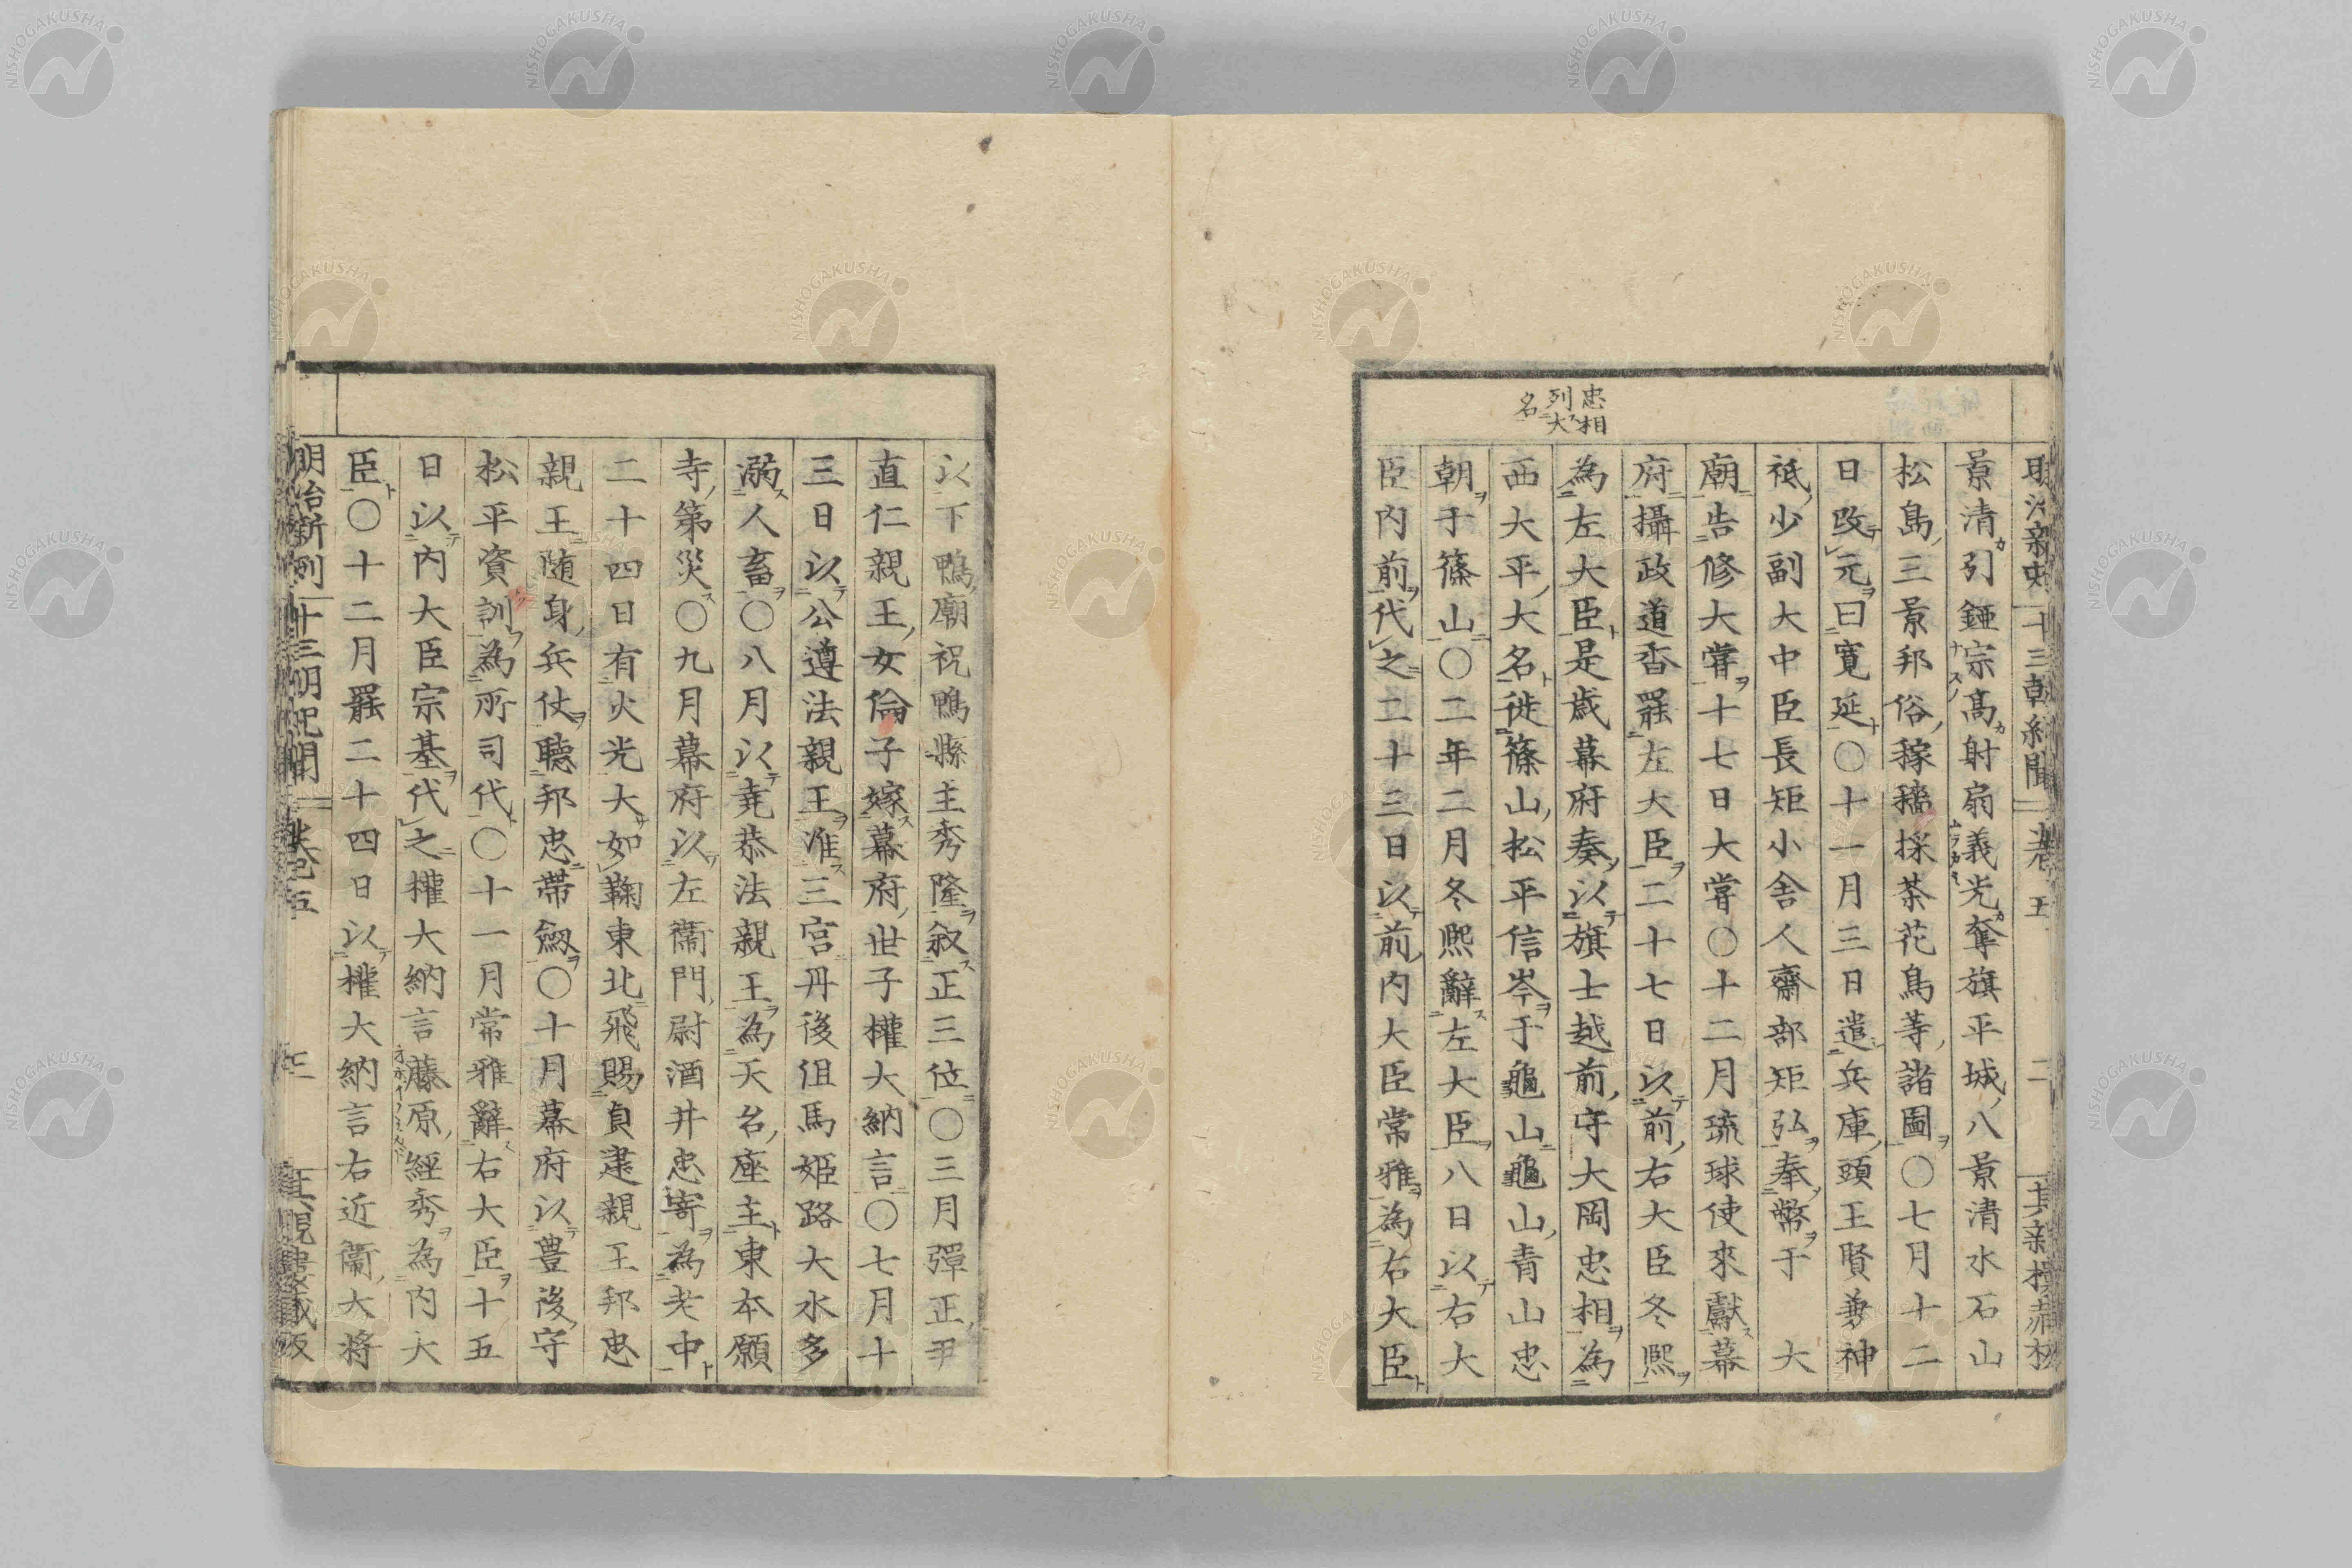 忠相
列大
名
景清引錏宗高射扇義光奪旗平城八景清水石山
松島三景邦俗稼穡採茶花鳥等諸圖〇七月十二
日改元曰寬延〇十一月三日遣兵庫頭王賢兼神
祗少副大中臣長矩小舍人齋部矩弘奉幣于　大
廟告修大嘗十七日大嘗〇十二月琉球使來獻幕
府攝政道香罷左大臣二十七日以前右大臣冬熙
為左大臣是歲幕府奏以旗士越前守大岡忠相為
西大平大名徙篠山松平信岑于龜山龜山青山忠
朝于篠山〇二年二月冬熙辭左大臣八日以右大
臣內前代之二十三日以前內大臣常雅為右大臣
以下鴨廟祝鴨縣主秀隆叙正三位〇三月彈正尹
直仁親王女倫子嫁幕府世子權大納言〇七月十
三日以公遵法親王准三宮丹後但馬姬路大水多
溺人畜〇八月以堯恭法親王為天台座主東本願
寺第災〇九月幕府以左衞門尉酒井忠寄為老中
二十四日有火光大如鞠東北飛賜貞建親王邦忠
親王隨身兵仗聽邦忠帶劔〇十月幕府以豊後守
松平資訓為所司代〇十一月常雅辭右大臣十五
日以內大臣宗基代之權大納言藤原經秀為內大
臣〇十二月罷二十四日以權大納言右近衞大將
NISHOGAKUSHA